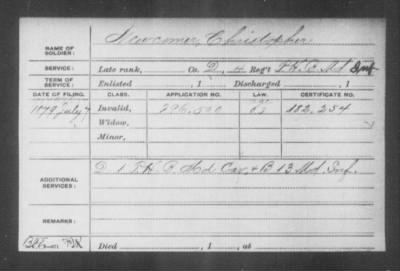 NAME OF SOLDIER: Newcomer, Christopher
SERVICE: Late rank, Co. D, 4 Reg't P. H. B. Md Inf
TERM OF SERVICE: Enlisted , 1 Discharged , 1
DATE OF FILING. CLASS. APPLICATION NO. LAW. CERTIFICATE NO.
1879 July 7 Invalid, 296.500 182.254
Widow,
Minor,
ADDITIONAL SERVICES: D 1 P. H. B. Md. Cav. & B 13 Md. Inf.
REMARKS:
Died , 1 , at